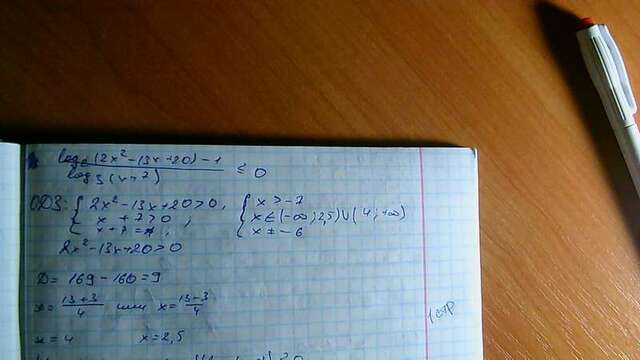 (2x² - 13x + 20) - 1 ≤ 0
log₃(x+7)
ОДЗ: { 2x² - 13x + 20 > 0, { x > -7
x + 7 > 0; x ∈ (-∞; 2,5) ∪ (4; +∞)
x + 7 ≠ x ≠ -6
2x² - 13x + 20 > 0
D = 169 - 160 = 9
x = 13+3/4 или x = 13-3/4
x = 4 x = 2,5
1 стр